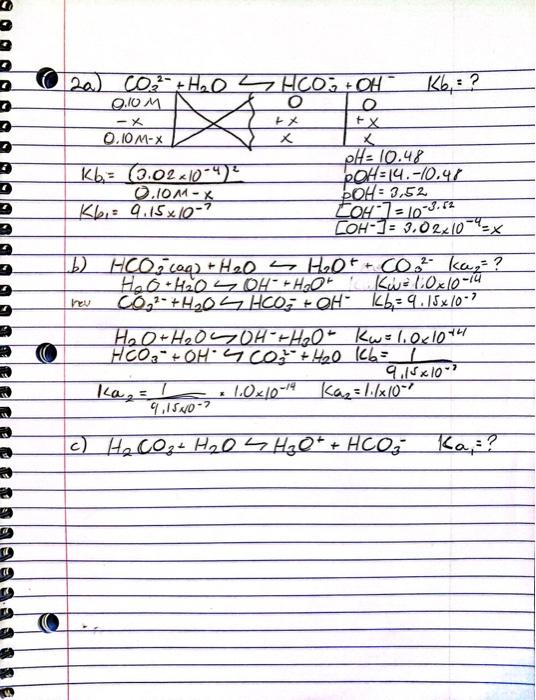 2a) CO₃²⁻ + H₂O ⇆ HCO₃⁻ + OH⁻ Kb₁ = ?
0.10 M 0 0
-x +x +x
0.10M-x x x
pH = 10.48
Kb₁ = (3.02x10⁻⁴)² / 0.10M - x pOH = 14.-10.48
pOH = 3.52
Kb₁ = 9.15x10⁻⁷ [OH⁻] = 10⁻³·⁵²
[OH⁻] = 3.02x10⁻⁴ = x
b) HCO₃⁻(aq) + H₂O ⇆ H₃O⁺ + CO₃²⁻ Ka₂ = ?
H₂O + H₂O ⇆ OH⁻ + H₃O⁺ Kw = 1.0x10⁻¹⁴
rev CO₃²⁻ + H₂O ⇆ HCO₃⁻ + OH⁻ Kb₁ = 9.15x10⁻⁷
H₂O + H₂O ⇆ OH⁻ + H₃O⁺ Kw = 1.0x10⁻¹⁴
HCO₃⁻ + OH⁻ ⇆ CO₃²⁻ + H₂O Kb = 1 / 9.15x10⁻⁷
Ka₂ = 1 / 9.15x10⁻⁷ * 1.0x10⁻¹⁴ Ka₂ = 1.1x10⁻⁸
c) H₂CO₃ + H₂O ⇆ H₃O⁺ + HCO₃⁻ Ka₁ = ?